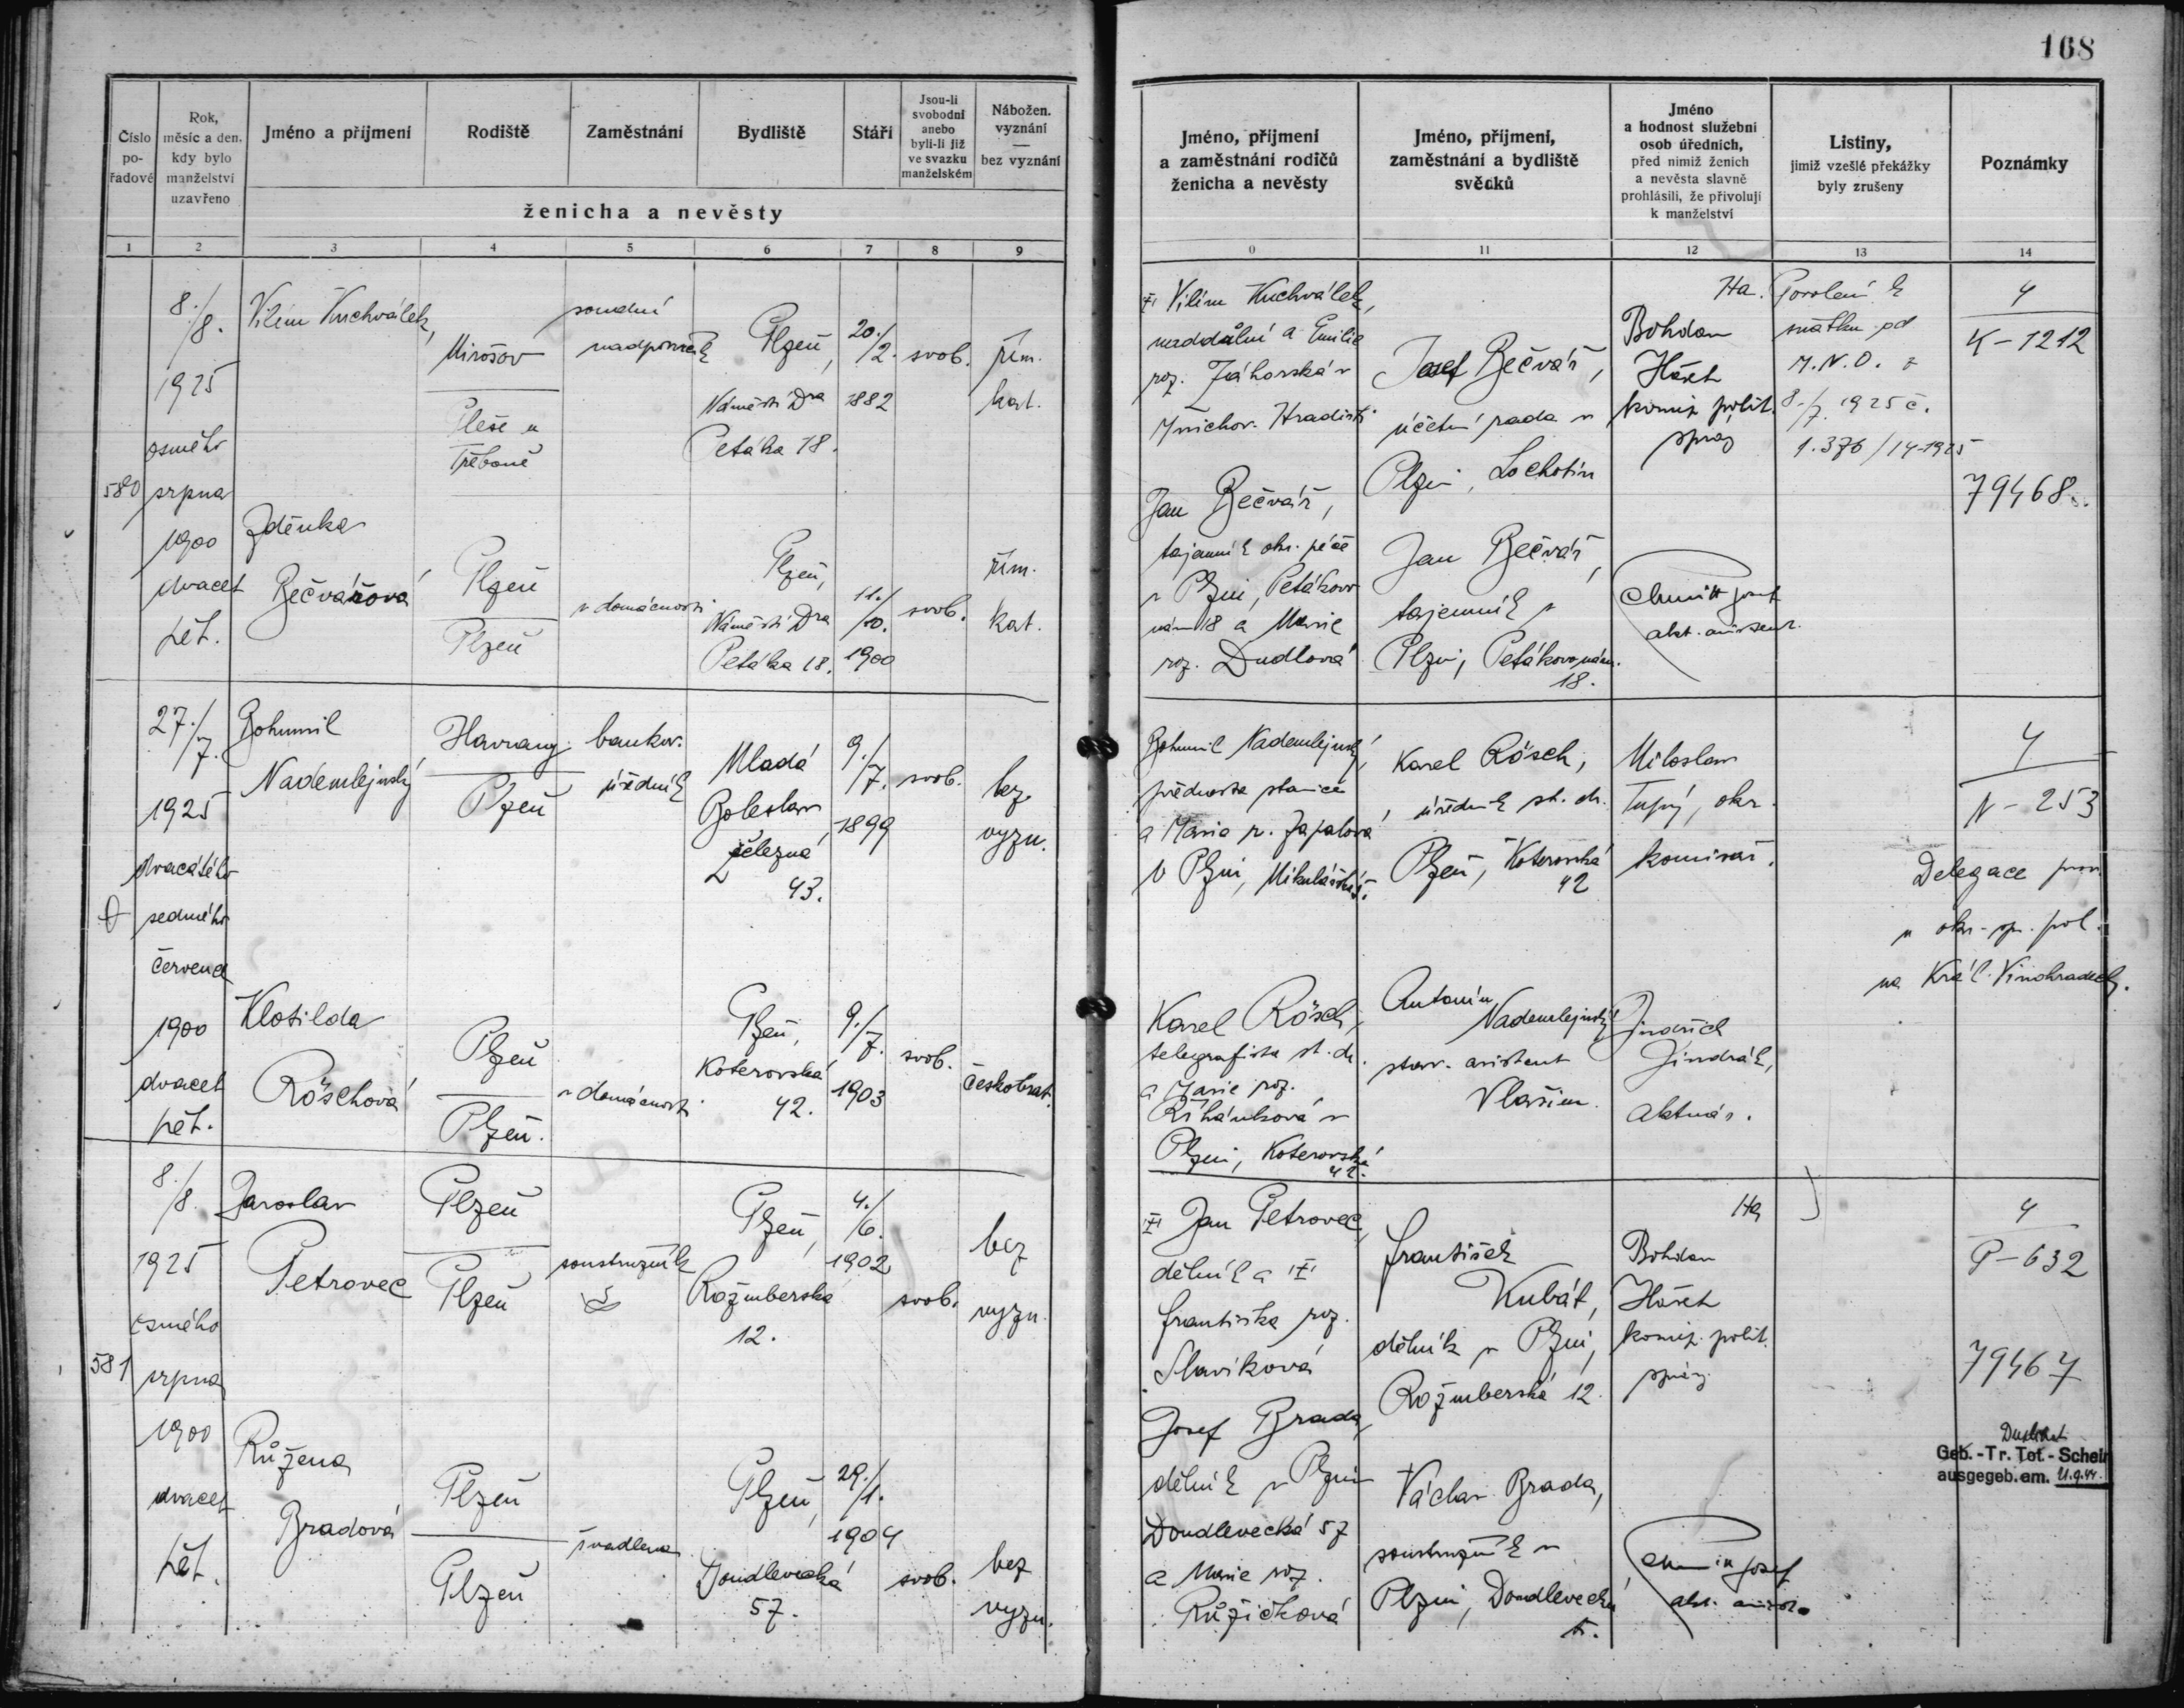 168
Číslo
po-
řadové
Rok,
měsíc a den,
kdy bylo
manželství
uzavřeno
Jméno a příjmení
Rodiště
Zaměstnání
Bydliště
Stáří
Jsou-li
svobodni
anebo
byli-li již
ve svazku
manželském
Nábožen.
vyznání
—
bez vyznání
ženicha a nevěsty
Jméno, příjmení
a zaměstnání rodičů
ženicha a nevěsty
Jméno, příjmení,
zaměstnání a bydliště
svědků
Jméno
a hodnost služební
osob úředních,
před nimiž ženich
a nevěsta slavně
prohlásili, že přivolují
k manželství
Listiny,
jimiž vzešlé překážky
byly zrušeny
Poznámky
1 2 3 4 5 6 7 8 9
0 11 12 13 14
580
8./
8.
1925
osmého
srpna
1900
dvacet
pět.
Vilém Kuchválek,
Mirošov
Pleše u
Třeboně
soudní
Plzeň,
Náměstí Dra
Petáka 18.
20./
2.
1882
svob.
řím.
kat.
Zdeňka
Bečvářová
Plzeň
Plzeň
v domácnosti
Plzeň,
Náměstí Dra
Petáka 18.
11./
10.
1900
svob.
řím.
kat.
Vilém Kuchválek,
naddůlní a Emilie
roz. Záhorská v
Mnichov. Hradišti
Jan Bečvář,
tajemník okr. péče
v Plzni, Petákovo
nám 18 a Marie
roz. Dudlová
Josef Bečvář,
účetní rada v
Plzni, Lochotín
Jan Bečvář,
tajemník v
Plzni, Petákovo nám.
18.
Ha.
Bohdan
komis. polit.
správ
Josef
akt. assistent.
Povolení k
sňatku od
M.N.O. z
8./7. 1925 č.
1.376/14-1925
4
K-1212
79468.
27./
7.
1925
dvacátého
sedmého
července
1900
dvacet
pět.
Bohumil
Nademlejnský
Havraň
Plzeň
bankov.
úředník
Mladá
Boleslav,
železná
43.
9./
7.
1899
svob.
bez
vyzn.
Klotilda
Röschová
Plzeň
Plzeň.
v domácnosti
Plzeň,
Koterovská
42.
9./
7.
1903
svob.
českobrat.
Bohumil Nademlejnský,
přednosta stanice
a Marie r. Zápalová,
v Plzni, Mikulášská
Karel Rösch,
telegrafista st. dr.
a Marie roz.
Říhánková v
Plzni, Koterovská
42.
Karel Rösch,
úředník st. dr.
Plzeň, Koterovská
42
Antonín
Nademlejnský
stav. asistent
Vlašim.
Miloslav
Tupý, okr.
komisař.
Jindřich
Jindrák,
aktuár.
4
N-253
Delegace
u okr. sp. pol.
na Král. Vinohradech.
581
8./
8.
1925
osmého
srpna
1900
dvacet
pět.
Jaroslav
Petrovec
Plzeň
Plzeň
soustružník
Plzeň,
Rožmberská
12.
4./
6.
1902
svob.
bez
vyzn.
Růžena
Bradová
Plzeň
Plzeň
švadlena
Plzeň,
Doudlevecká
57.
29./
1.
1904
svob.
bez
vyzn.
Jan Petrovec,
dělník a
Františka roz.
Slavíková
Josef Brada,
dělník v Plzni
Doudlevecká 57
a Marie roz.
Růžičková
František
Kubát,
dělník v Plzni,
Rožmberská 12.
Václav Brada,
soustružník v
Plzni, Doudlevecká
Ha
Bohdan
komis. polit.
správ.
Josef
akt.
4
P-632
79467
Duplikat
Geb.-Tr. Tot.-Schein
ausgegeb. am. 21.9.44.